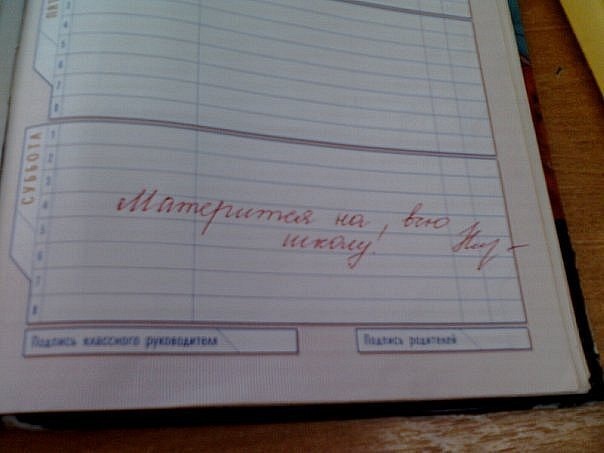 4
5
6
7
8
СУББОТА
1
2
3
4
5
6
7
8
Матерится на, всю
школу!
Подпись классного руководителя
Подпись родителей